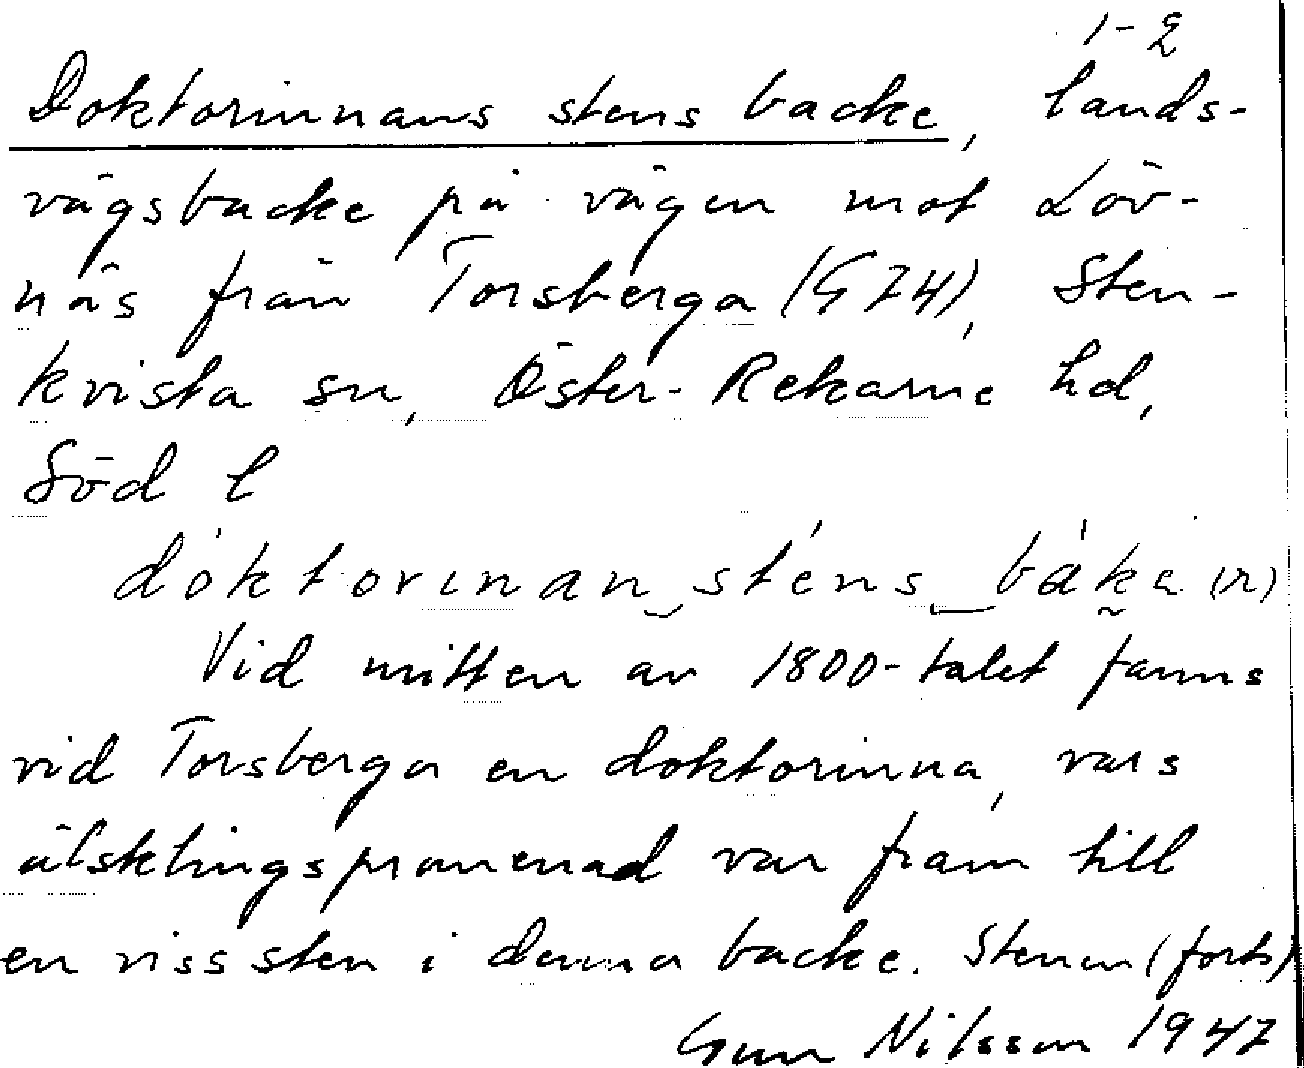 1-2
Doktorinnans stens backe, lands-
vägsbacke på vägen mot Löv-
näs från Torsberga (G74), Sten-
kvista sn, Öster-Rekarne hd,
Söd l
dóktorınan sténs báka (n)
Vid mitten av 1800-talet fanns
vid Torsberga en doktorinna, vars
älsklingspromenad var fram till
en viss sten i denna backe. Stenen (forts)
Gun Nilsson 1947